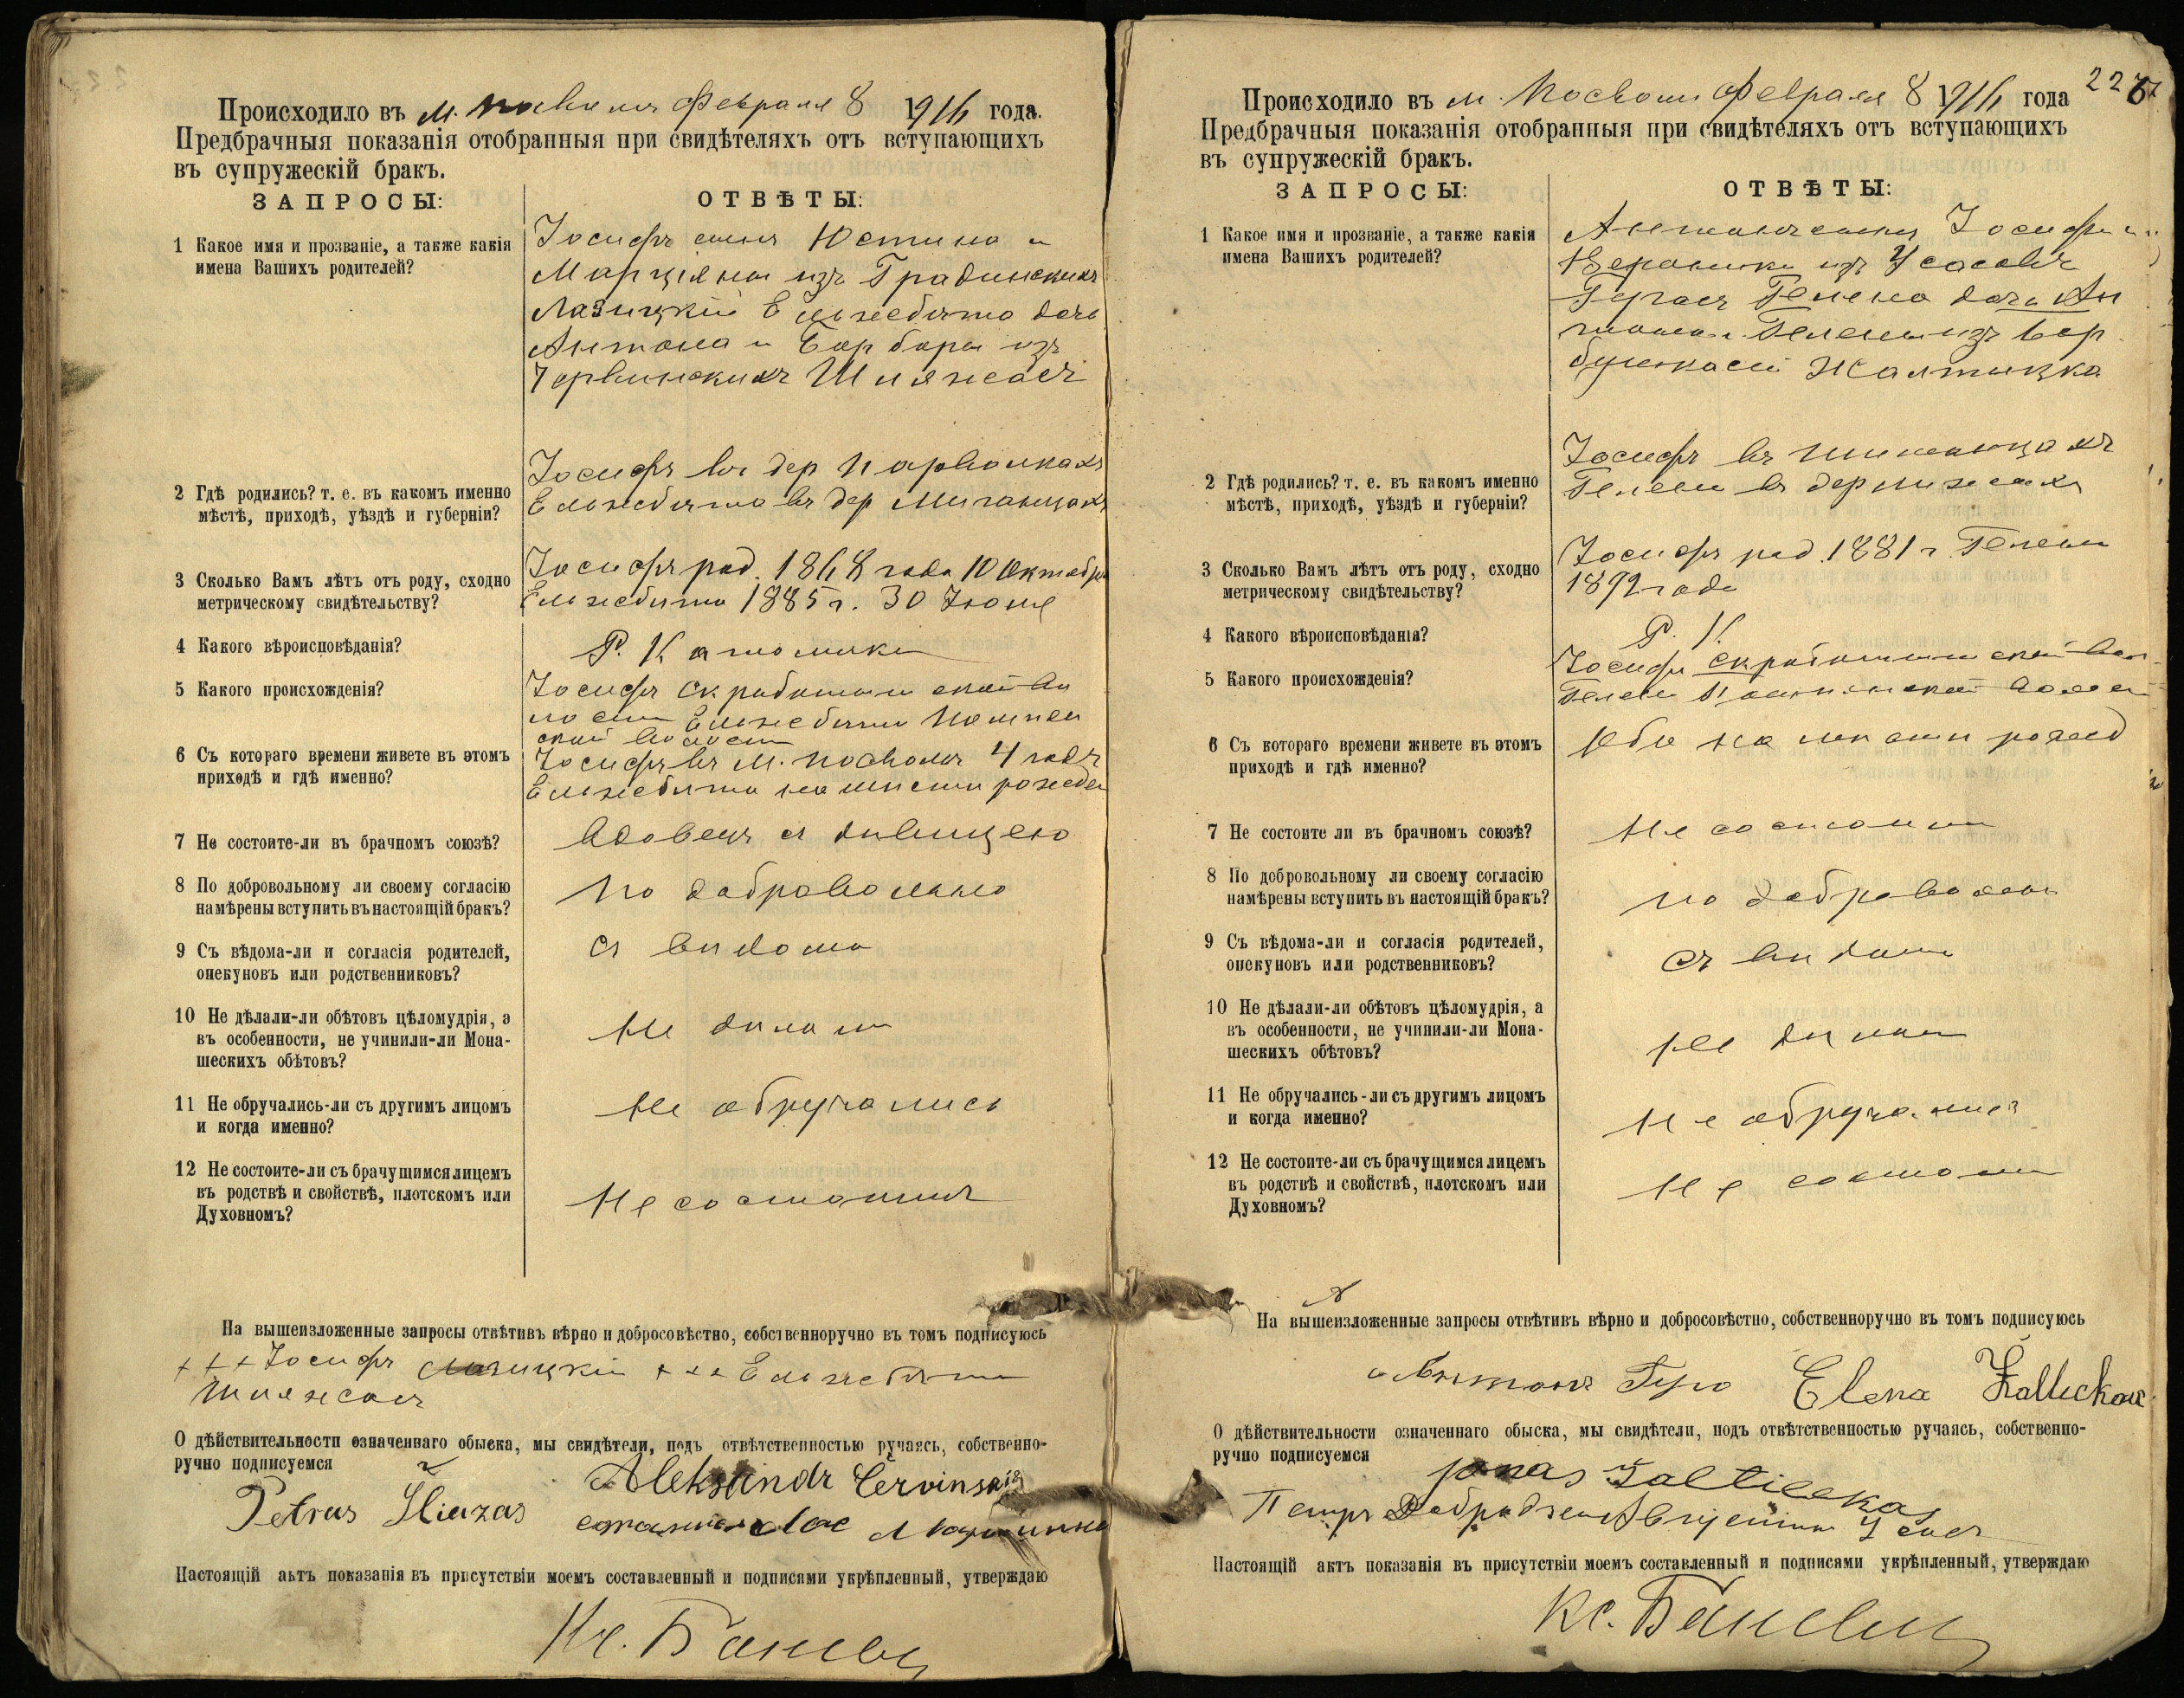 Происходило въ м. Посволи Февраля 8 1916 года.
Предбрачныя показанія отобранныя при свидѣтеляхъ отъ вступающихъ
въ супружескій бракъ.
ЗАПРОСЫ:
ОТВѢТЫ:
1 Какое имя и прозваніе, а также какія
имена Вашихъ родителей?
Іосифъ сынъ Юстина и
Марціяны изъ Градинскихъ
Лазицкій Ельжбѣта дочь
Антона и Барбары изъ
Червинскихъ Шляжасъ
2 Гдѣ родились? т. е. въ какомъ именно
мѣстѣ, приходѣ, уѣздѣ и губерніи?
Іосифъ въ дер
Ельжбѣта въ дер
3 Сколько Вамъ лѣтъ отъ роду, сходно
метрическому свидѣтельству?
Іосифъ род. 1868 года 10 Октября
Ельжбѣта 1885 г. 30 Іюня
4 Какого вѣроисповѣданія?
Р. Католики
5 Какого происхожденія?
Іосифъ Скробот
Ельжбѣта
волости
6 Съ котораго времени живете въ этомъ
приходѣ и гдѣ именно?
Іосифъ въ м. Посволь 4 годъ
Ельжбѣта на мисти рожден
7 Не состоите-ли въ брачномъ союзѣ?
Вдовецъ съ дивицею
8 По добровольному ли своему согласію
намѣрены вступить въ настоящій бракъ?
по добровольно
9 Съ вѣдома-ли и согласія родителей,
опекуновъ или родственниковъ?
съ видома
10 Не дѣлали-ли обѣтовъ цѣломудрія, а
въ особенности, не учинили-ли Мона-
шескихъ обѣтовъ?
Не дилали
11 Не обручались-ли съ другимъ лицомъ
и когда именно?
Не обручались
12 Не состоите-ли съ брачущимся лицемъ
въ родствѣ и свойствѣ, плотскомъ или
Духовномъ?
Не состоимъ
На вышеизложенные запросы отвѣтивъ вѣрно и добросовѣстно, собственноручно въ томъ подписуюсь
+++ Іосифъ Лазицкій +++ Ельжбѣта
Шляжасъ
О дѣйствительности означеннаго обыска, мы свидѣтели, подъ отвѣтственностью ручаясь, собственно-
ручно подписуемся
Aleksandr Červinskis
Petras Šliazas
Настоящій актъ показанія въ присутствіи моемъ составленный и подписями укрѣпленный, утверждаю
Кс.
2276
Происходило въ м. Посволи Февраля 8 1916 года
Предбрачныя показанія отобранныя при свидѣтеляхъ отъ вступающихъ
въ супружескій бракъ.
ЗАПРОСЫ:
ОТВѢТЫ:
1 Какое имя и прозваніе, а также какія
имена Вашихъ родителей?
Антонъ сынъ Іосифа и
Вероники изъ Усасовъ
Гелена дочь Ан
тона и Гелены изъ Вер
Жалтыцка
2 Гдѣ родились? т. е. въ какомъ именно
мѣстѣ, приходѣ, уѣздѣ и губерніи?
Іосифъ въ
Гелена въ дер
3 Сколько Вамъ лѣтъ отъ роду, сходно
метрическому свидѣтельству?
Іосифъ род. 1881 г. Гелена
1892 года
4 Какого вѣроисповѣданія?
Р. К.
5 Какого происхожденія?
Іосифъ
Гелена
6 Съ котораго времени живете въ этомъ
приходѣ и гдѣ именно?
Оба на мисти рожд
7 Не состоите ли въ брачномъ союзѣ?
Не состоимъ
8 По добровольному ли своему согласію
намѣрены вступить въ настоящій бракъ?
по добровольно
9 Съ вѣдома-ли и согласія родителей,
опекуновъ или родственниковъ?
съ видома
10 Не дѣлали-ли обѣтовъ цѣломудрія, а
въ особенности, не учинили-ли Мона-
шескихъ обѣтовъ?
Не дилали
11 Не обручались-ли съ другимъ лицомъ
и когда именно?
Не обручались
12 Не состоите-ли съ брачущимся лицемъ
въ родствѣ и свойствѣ, плотскомъ или
Духовномъ?
Не состоим
На вышеизложенные запросы отвѣтивъ вѣрно и добросовѣстно, собственноручно въ томъ подписуюсь
Антонъ Elena
О дѣйствительности означеннаго обыска, мы свидѣтели, подъ отвѣтственностью ручаясь, собственно-
ручно подписуемся
Jonas Žaltieckas
Петръ
Настоящій актъ показанія въ присутствіи моемъ составленный и подписями укрѣпленный, утверждаю
Кс.